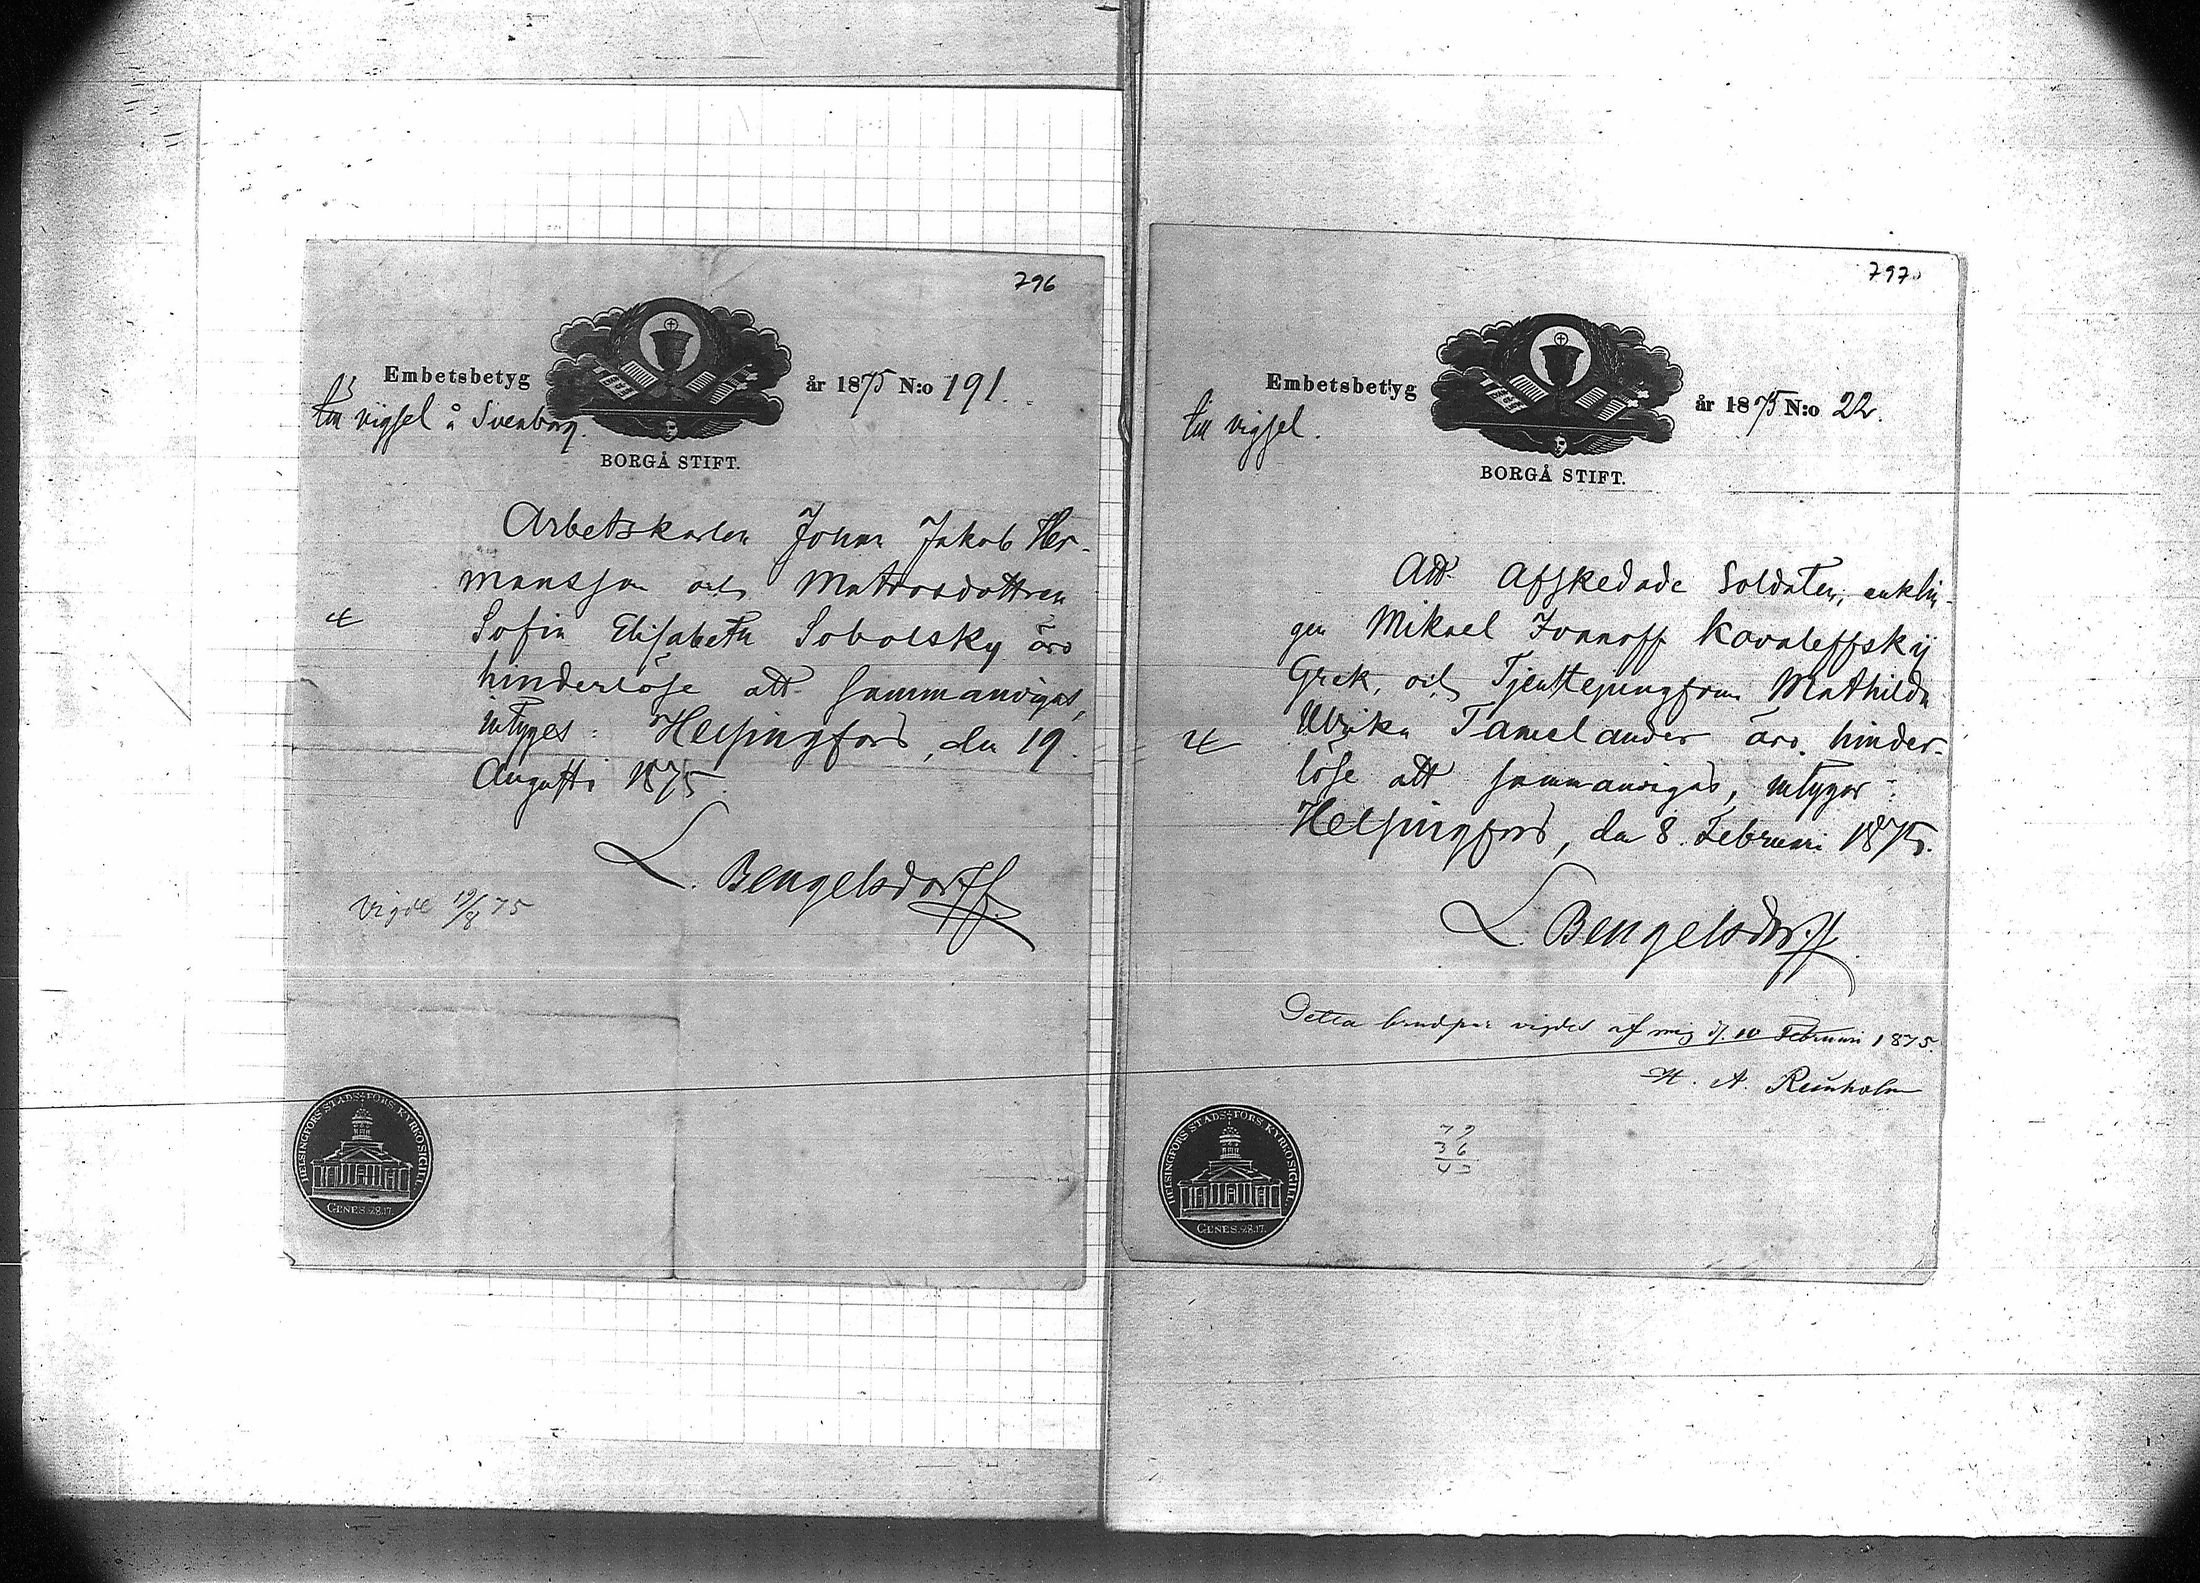 796
Embetsbetyg år 1875 N:o 191.
till vigsel å Sveaborg.
BORGÅ STIFT.
Arbetskarlen Johan Jakob Her-
mansson och Matrosdottren
Sofia Elisabeth Sobolsky äro
hinderlöse att sammanvigas,
intygas: Helsingfors, den 19
Augusti 1875.
L. Bengelsdorff.
Vigde 19/8 75
HELSINGFORS STADS FÖRS. KYRKO SIGILL.
GENES. 28.17.
797
Embetsbetyg år 1875 N:o 22.
till vigsel.
BORGÅ STIFT.
Att Afskedade Soldaten, enklin-
gen Mikael Ivanoff Kovaleffskij
Grek, och Tjenstejungfrun Mathilda
Ulrika Tamelander äro hinder-
löse att sammanvigas, intygar:
Helsingfors, den 8. Februari 1875.
L. Bengelsdorff.
Detta brudpar vigdes af mig d. 10 Februari 1875.
H. A. Reinholm
79
36
43
HELSINGFORS STADS FÖRS. KYRKO SIGILL.
GENES. 28.17.